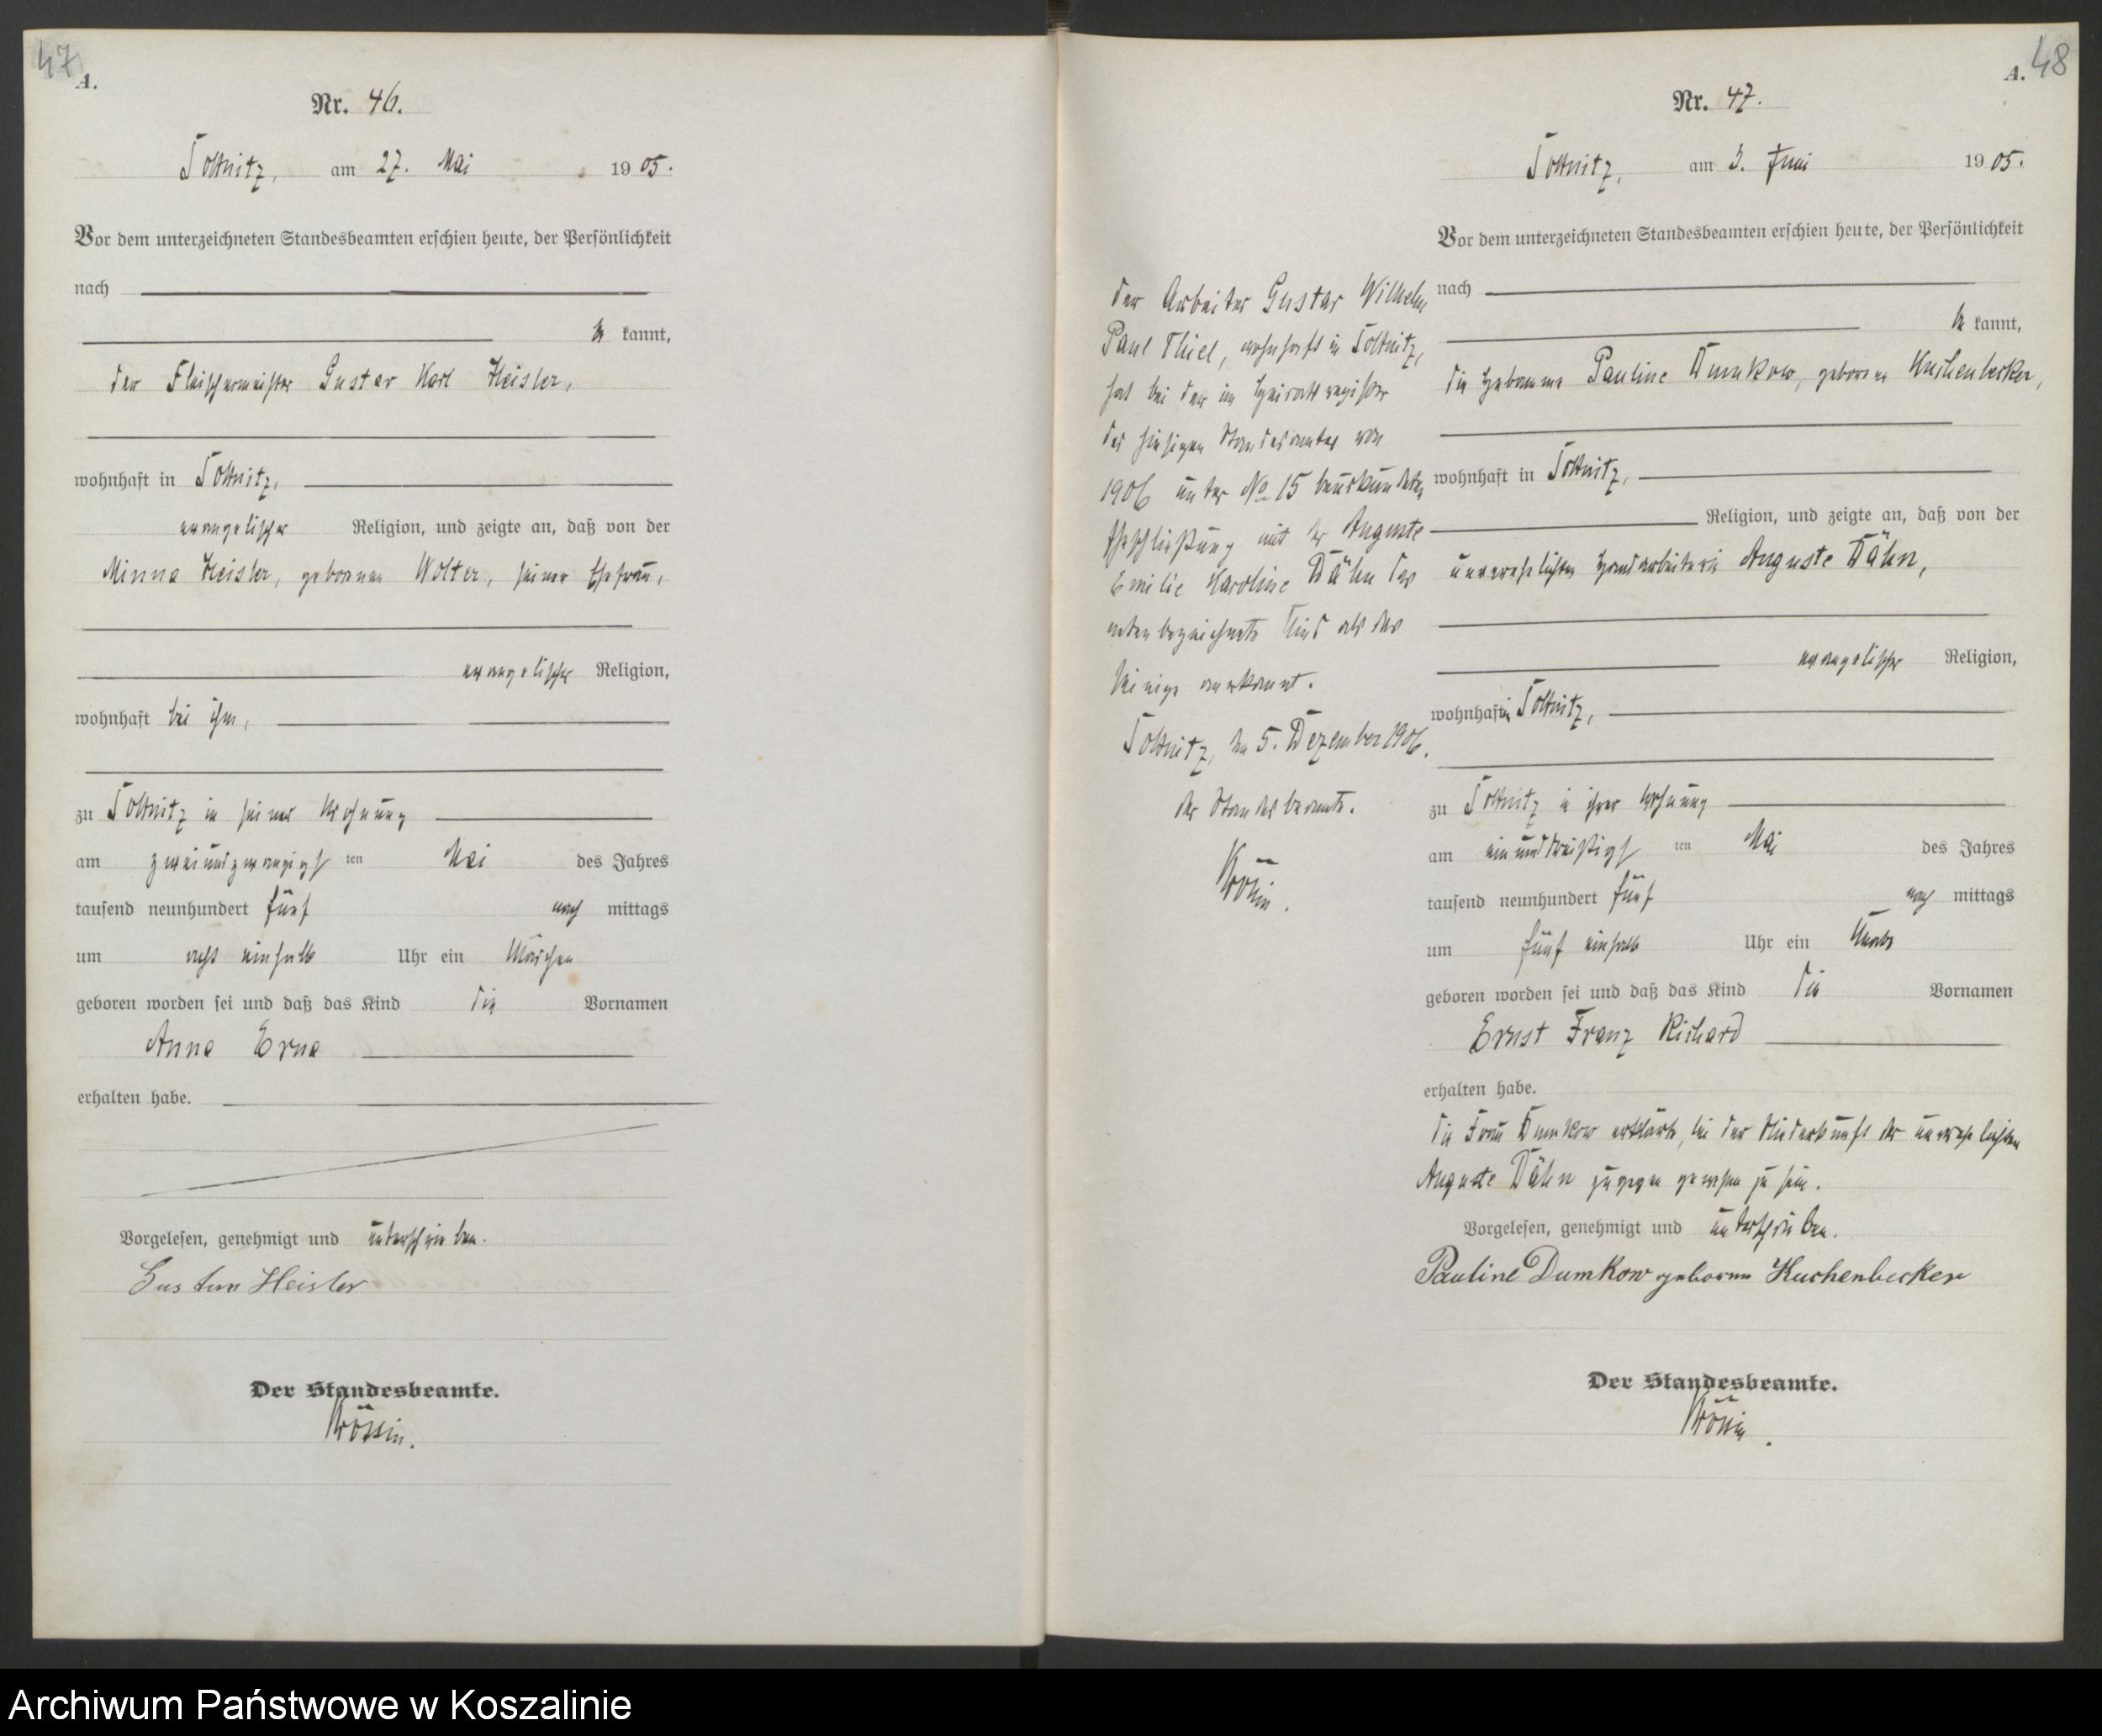 47
A.
Nr. 46.
Soltnitz, am 27. Mai 1905.
Vor dem unterzeichneten Standesbeamten erschien heute, der Persönlichkeit
nach
be kannt,
der Fleischermeister Gustav Karl Heisler,
wohnhaft in Soltnitz,
evangelischer Religion, und zeigte an, daß von der
Minna Heisler, geborenen Wolter, seiner Ehefrau,
evangelischer Religion,
wohnhaft bei ihm,
zu Soltnitz in seiner Wohnung
am zweiundzwanzigsten Mai des Jahres
tausend neunhundert fünf nach mittags
um acht einhalb Uhr ein Mädchen
geboren worden sei und daß das Kind die Vornamen
Anna Erna
erhalten habe.
Vorgelesen, genehmigt und unterschrieben.
Gustav Heisler
Der Standesbeamte.
Krössin.
A. 48
Nr. 47.
Soltnitz, am 3. Juni 1905.
Vor dem unterzeichneten Standesbeamten erschien heute, der Persönlichkeit
nach
be kannt,
die Hebamme Pauline Dumkow, geborene Kuchenbecker,
wohnhaft in Soltnitz,
Religion, und zeigte an, daß von der
unverehelichten Handarbeiterin Auguste Dähn,
evangelischer Religion,
wohnhaft in Soltnitz,
zu Soltnitz in ihrer Wohnung
am einunddreißigsten Mai des Jahres
tausend neunhundert fünf nach mittags
um fünf einhalb Uhr ein Knabe
geboren worden sei und daß das Kind die Vornamen
Ernst Franz Richard
erhalten habe.
Die Frau Dumkow erklärte, bei der Niederkunft der unverehelichten
Auguste Dähn zugegen gewesen zu sein.
Vorgelesen, genehmigt und unterschrieben.
Pauline Dumkow geborene Kuchenbecker
Der Standesbeamte.
Krössin.
Der Arbeiter Gustav Wilhelm
Paul Thiel, wohnhaft in Soltnitz,
hat bei der im Heiratsregister
des hiesigen Standesamtes von
1906 unter No 15 beurkundeten
Eheschließung mit der Auguste
Emilie Karoline Dähn das
nebenbezeichnete Kind als das
seinige anerkannt.
Soltnitz, den 5. Dezember 1906.
Der Standesbeamte.
Krössin.
Archiwum Państwowe w Koszalinie